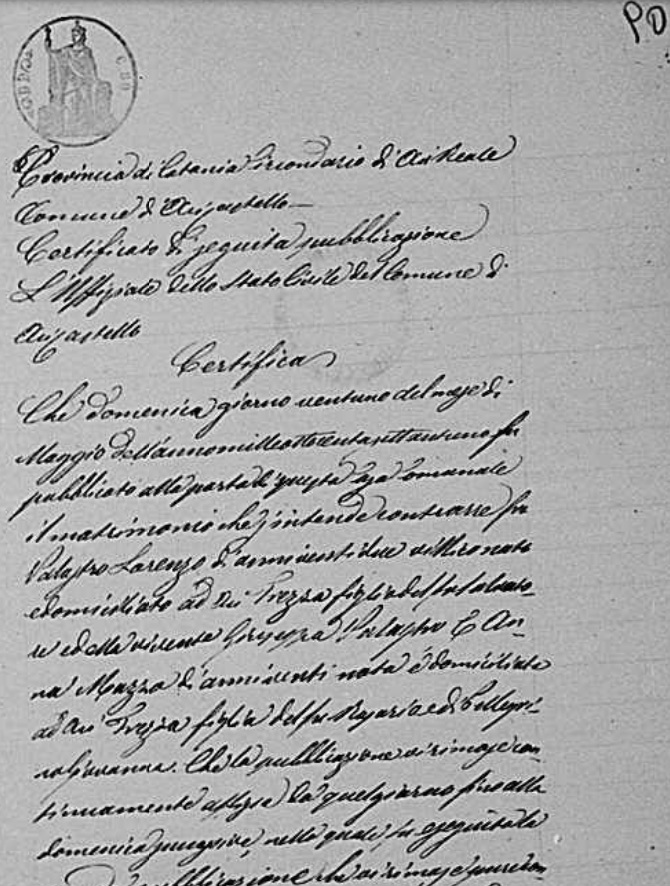 PD
Provincia di Catania Circondario di Aci Reale
Comune di Aci Castello
Certificato di seguita pubblicazione
L'Uffiziale dello Stato Civile del Comune di
Aci Castello
Certifica
Che domenica giorno ventuno del mese di
Maggio dell'anno milleottocentosettantuno fu
pubblicato alla porta di questa Casa Comunale
il matrimonio che s'intende contrarre fra
Valastro Lorenzo di anni ventidue nato
e domiciliato ad Aci Trezza figlio del fu Salvato-
re ed della vivente Giuseppa Valastro E An-
na Mazza di anni venti nata e domiciliata
ad Aci Trezza figlia del fu Rosario e di Pellegri-
no Giovanna. Che la pubblicazione vi rimase con
tinuamente affissa da quel giorno fino alla
domenica successiva, nella quale fu eseguita la
pubblicazione che vi rimase